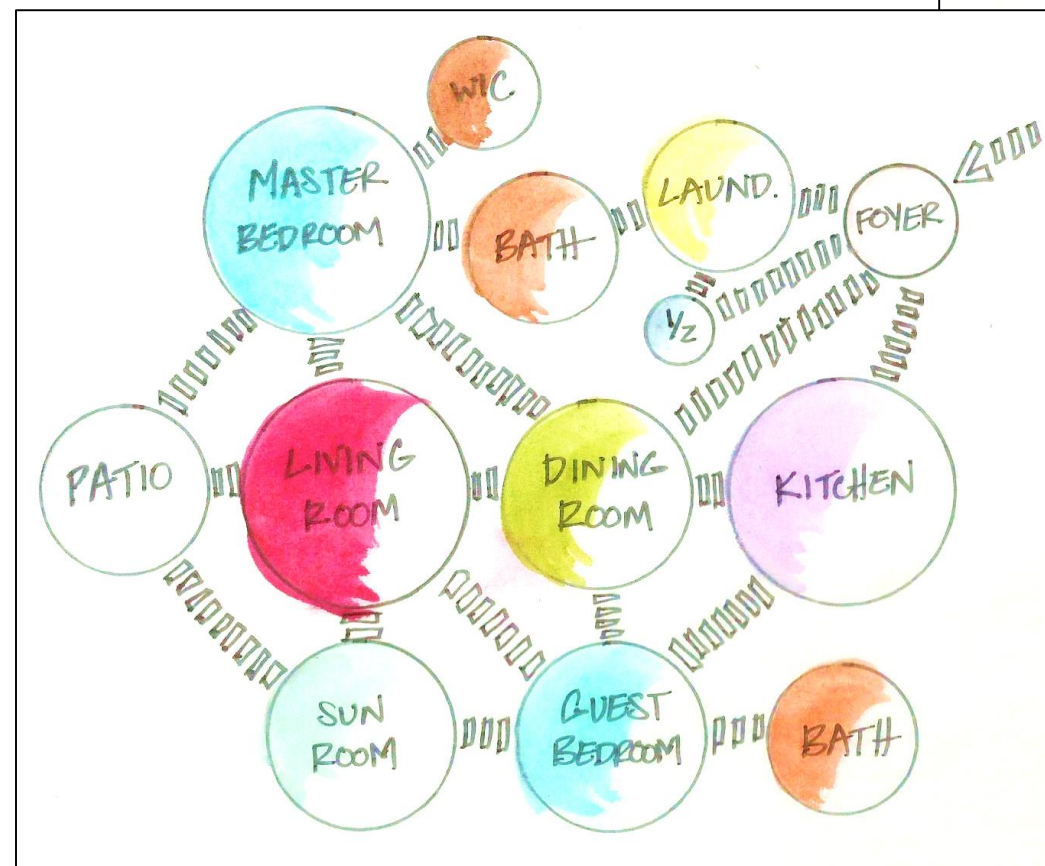 WIC
MASTER
BEDROOM
BATH
LAUND.
FOYER
1/2
PATIO
LIVING
ROOM
DINING
ROOM
KITCHEN
SUN
ROOM
GUEST
BEDROOM
BATH